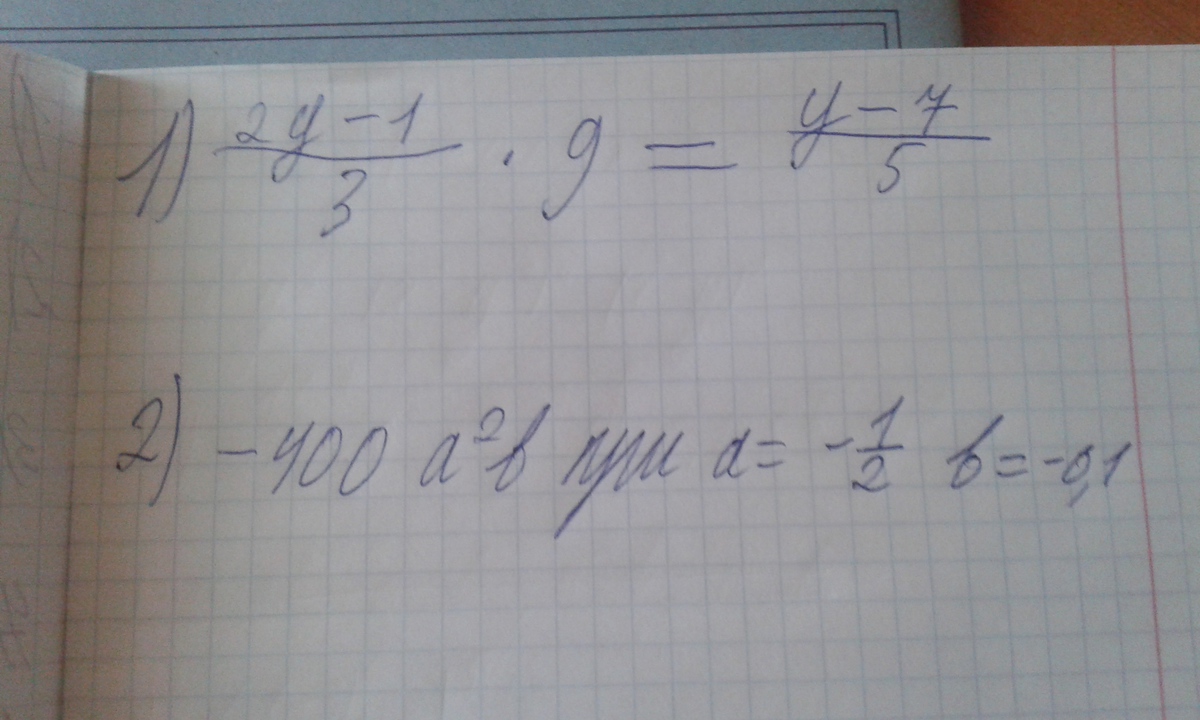 1) (2y-1)/3 · 9 = (y-7)/5
2) -400 a²b при a = -1/2 b = -0,1